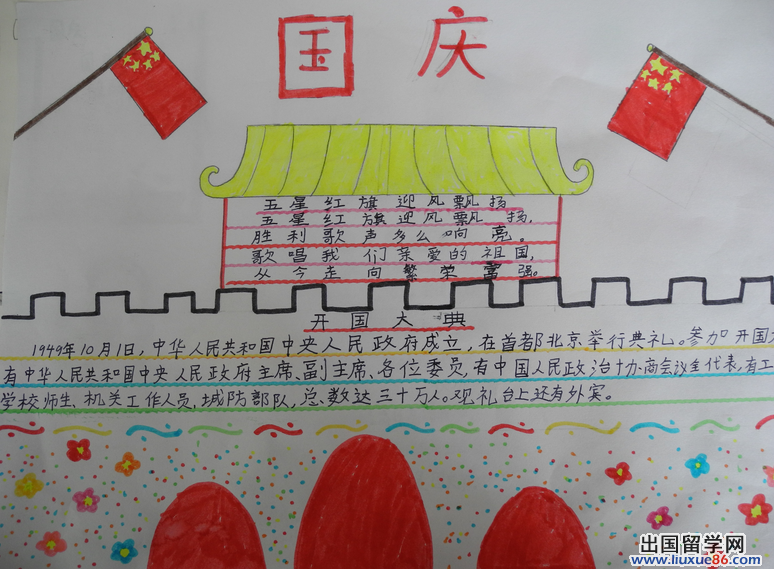 国庆
五星红旗迎风飘扬
五星红旗迎风飘扬,
胜利歌声多么响亮。
歌唱我们亲爱的祖国,
从今走向繁荣富强。
开国大典
1949年10月1日,中华人民共和国中央人民政府成立,在首都北京举行典礼。参加开国
有中华人民共和国中央人民政府主席、副主席、各位委员,有中国人民政治协商会议全代表,有工
学校师生、机关工作人员,城防部队,总数达三十万人。观礼台上还有外宾。
出国留学网
www.liuxue86.com